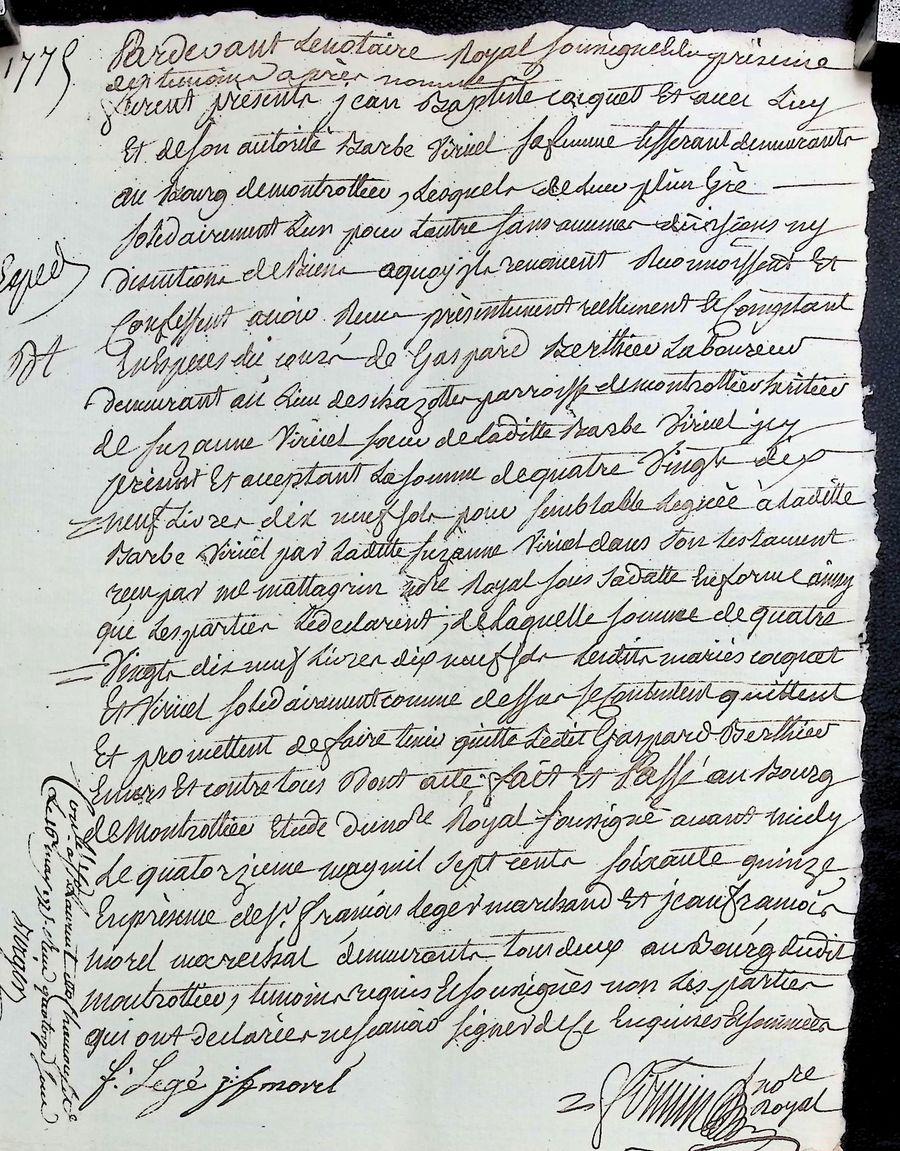 1775
Pardevant Le notaire Royal soussigné En presence
des temoins après nommés
furent présents jean Baptiste coquet Et avec Luy
Et de son autorité Barbe Viricel sa femme tisserant demeurants
au Bourg de montrottier, Lesquels de Leur plein Gré
solidairement L'un pour L'autre sans aucunes divisions ny
discution de Biens aquoy jls renoncent Reconnoissent Et
Confessent avoir Receu présentement réellement Et Comptant
En Especes du cours de Gaspard Berthier Laboureur
demeurant au Lieu des chazottes parroisse de montrottier héritier
de suzanne Viricel soeur de Laditte Barbe Viricel jcy
présent Et acceptant La somme de quatre Vingts dix
neuf Livres dix neuf sols pour semblable Leguée à Laditte
Barbe Viricel par Laditte suzanne Viricel dans son testament
receu par me mattagrin nore Royal sous sa datte En forme ainsy
que Les parties Le declarent, de Laquelle somme de quatre
Vingts dix neuf Livres dix neuf sols Lesdits mariés coquet
Et Viricel solidairement comme dessus se Contentent quittent
Et promettent de faire tenir quitte Ledit Gaspard Berthier
Envers Et contre tous Dont acte, fait Et Passé au Bourg
de Montrottier Etude du nore Royal soussigné avant midy
Le quatorzieme may mil sept cents soixante quinze
En présence de sr. françois leger marchand Et jean françois
morel marechal demeurants tous deux au Bourg dudit
montrottier, temoins requis Et soussignés non Les parties
qui ont declarées ne scavoir signer de ce Enquises Et sommées
f. Legé j f morel
nore
Royal
Exped